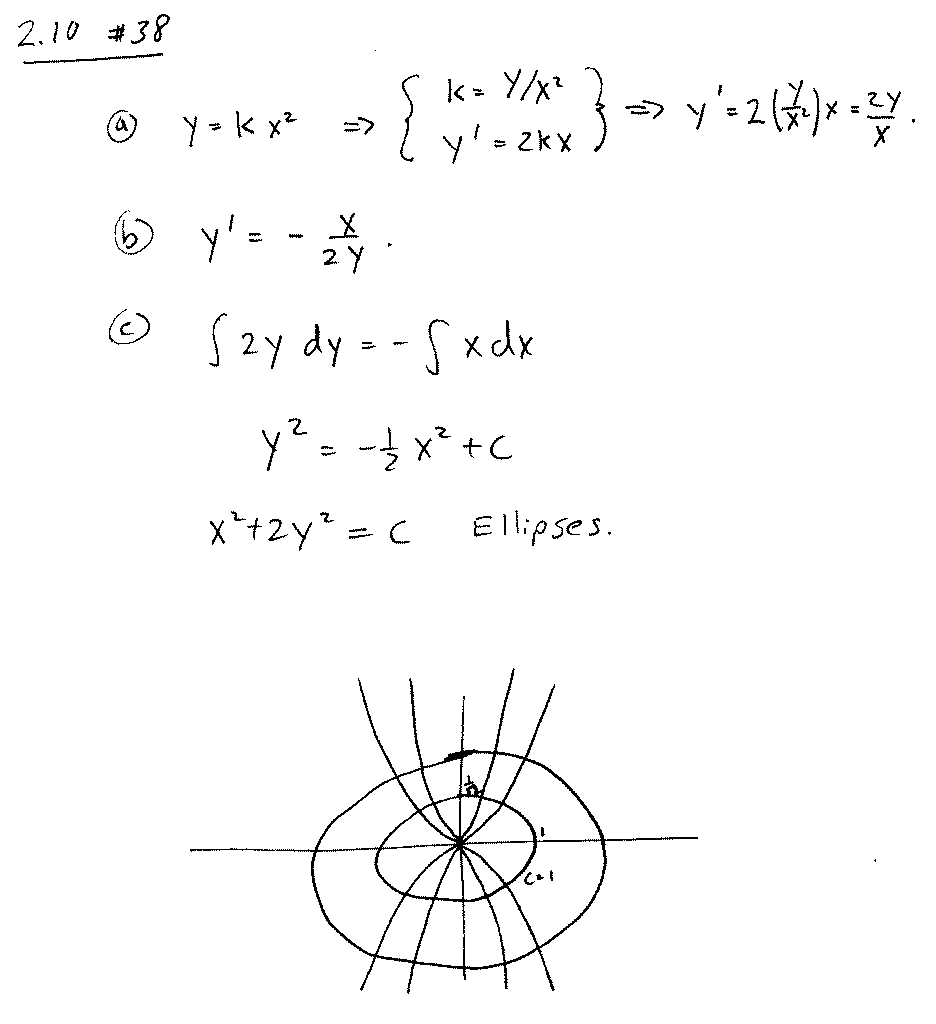 2.10 #38
(a) y = kx² ⇒ { k = y/x² y' = 2kx } ⇒ y' = 2(y/x²)x = 2y/x.
(b) y' = - x/2y.
(c) ∫ 2y dy = - ∫ x dx
y² = -½ x² + C
x² + 2y² = C Ellipses.
1
C=1